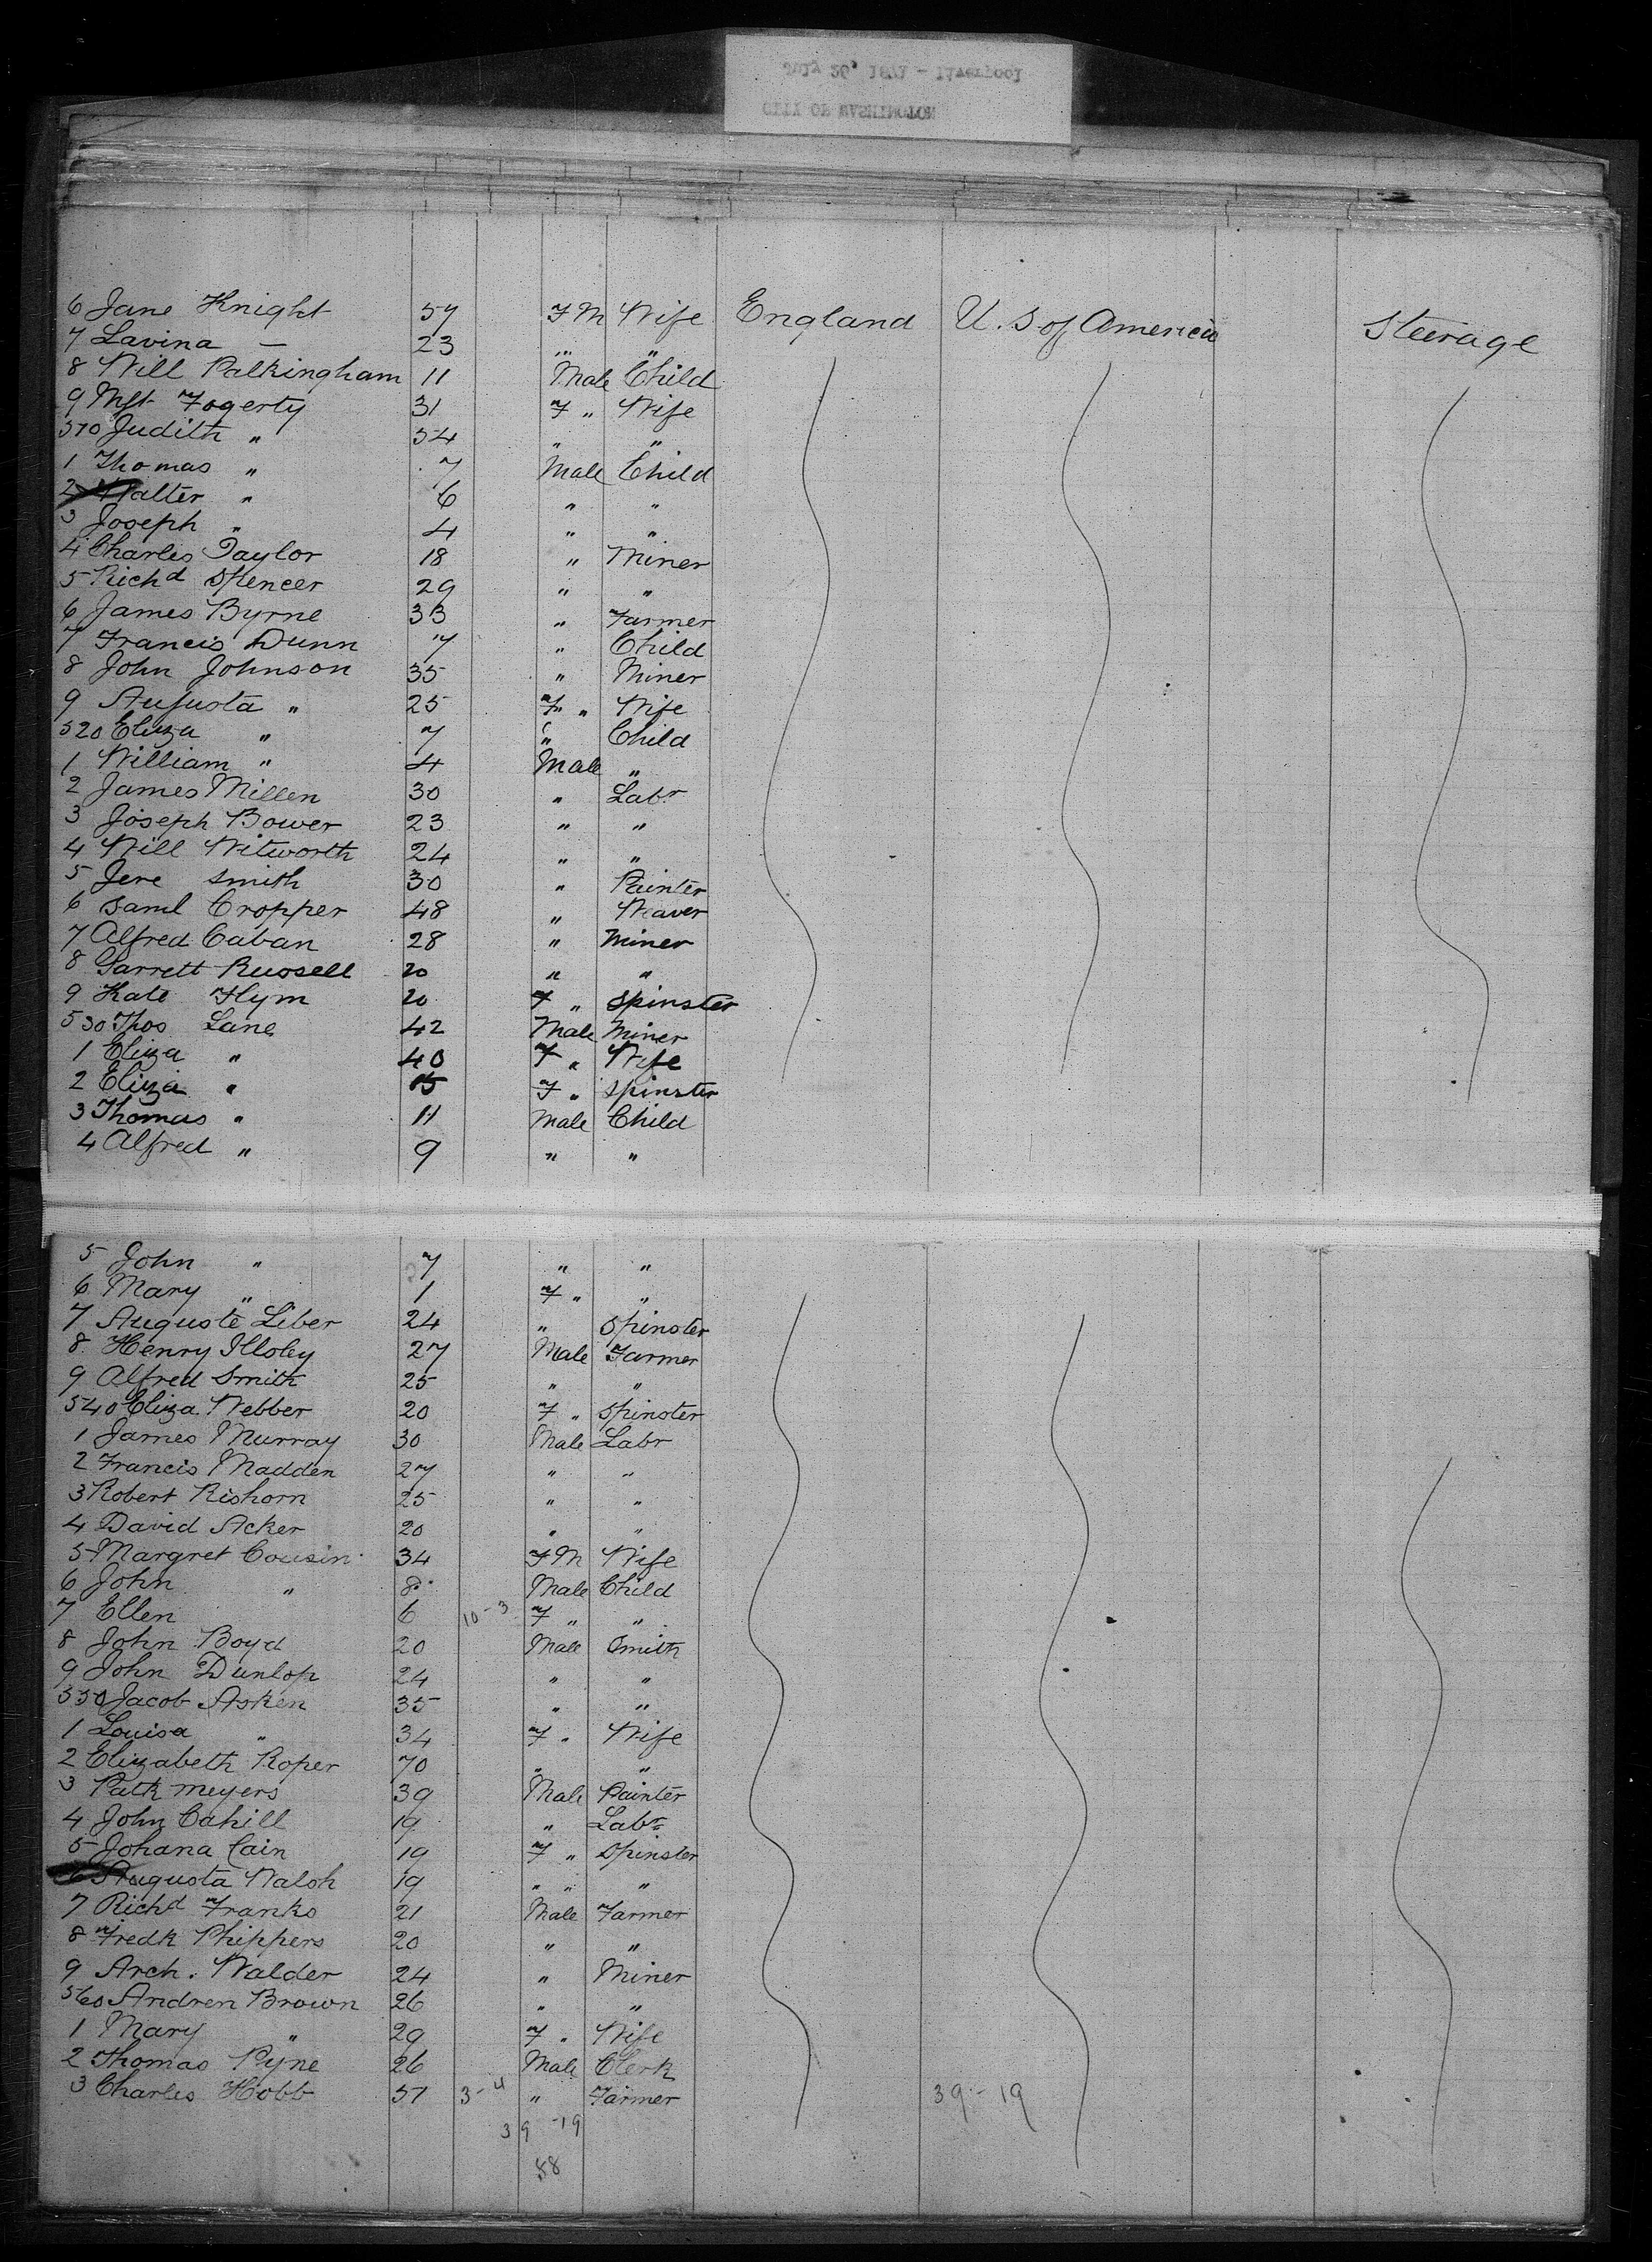 July 26, 1871 - Liverpool
CITY OF WASHINGTON
6 Jane Knight 57 F M Wife England U. S of America Steerage
7 Lavina — 23 " "
8 Will Palkingham 11 Male Child
9 Mgt Fogerty 31 F " Wife
510 Judith " 54 " "
1 Thomas " 7 Male Child
2 Walter " 6 " "
3 Joseph " 4 " "
4 Charles Taylor 18 " Miner
5 Richd Spencer 29 " "
6 James Byrne 33 " Farmer
7 Francis Dunn 7 " Child
8 John Johnson 35 " Miner
9 Augusta " 25 F " Wife
520 Eliza " 7 " Child
1 William " 4 Male "
2 James Millen 30 " Labr
3 Joseph Bower 23 " "
4 Will Witworth 24 " "
5 Jere Smith 30 " Painter
6 Saml Cropper 48 " Weaver
7 Alfred Caban 28 " Miner
8 Garrett Russell 20 " "
9 Kate Flym 20 F " Spinster
530 Thos Lane 42 Male Miner
1 Eliza " 40 F " Wife
2 Eliza " 15 F " Spinster
3 Thomas " 11 Male Child
4 Alfred " 9 " "
5 John " 7 " "
6 Mary " 1 F " "
7 Auguste Liber 24 " Spinster
8 Henry Illsley 27 Male Farmer
9 Alfred Smith 25 " "
540 Eliza Webber 20 F " Spinster
1 James Murray 30 Male Labr
2 Francis Madden 27 " "
3 Robert Rishorn 25 " "
4 David Acker 20 " "
5 Margret Cousin 34 F M Wife
6 John " 8 Male Child
7 Ellen 6 10-3 F " "
8 John Boyd 20 Male Smith
9 John Dunlop 24 " "
550 Jacob Asken 35 " "
1 Louisa " 34 F " Wife
2 Elizabeth Roper 70 " "
3 Patk Meyers 39 Male Painter
4 John Cahill 19 " Labr
5 Johana Cain 19 F " Spinster
6 Augusta Walsh 19 " " "
7 Richd Franks 21 Male Farmer
8 Fredk Phippers 20 " "
9 Arch. Walder 24 " Miner
560 Andren Brown 26 " "
1 Mary " 29 F " Wife
2 Thomas Pyne 26 Male Clerk
3 Charles Hobb 57 3-4 " Farmer 39-19
39-19
58